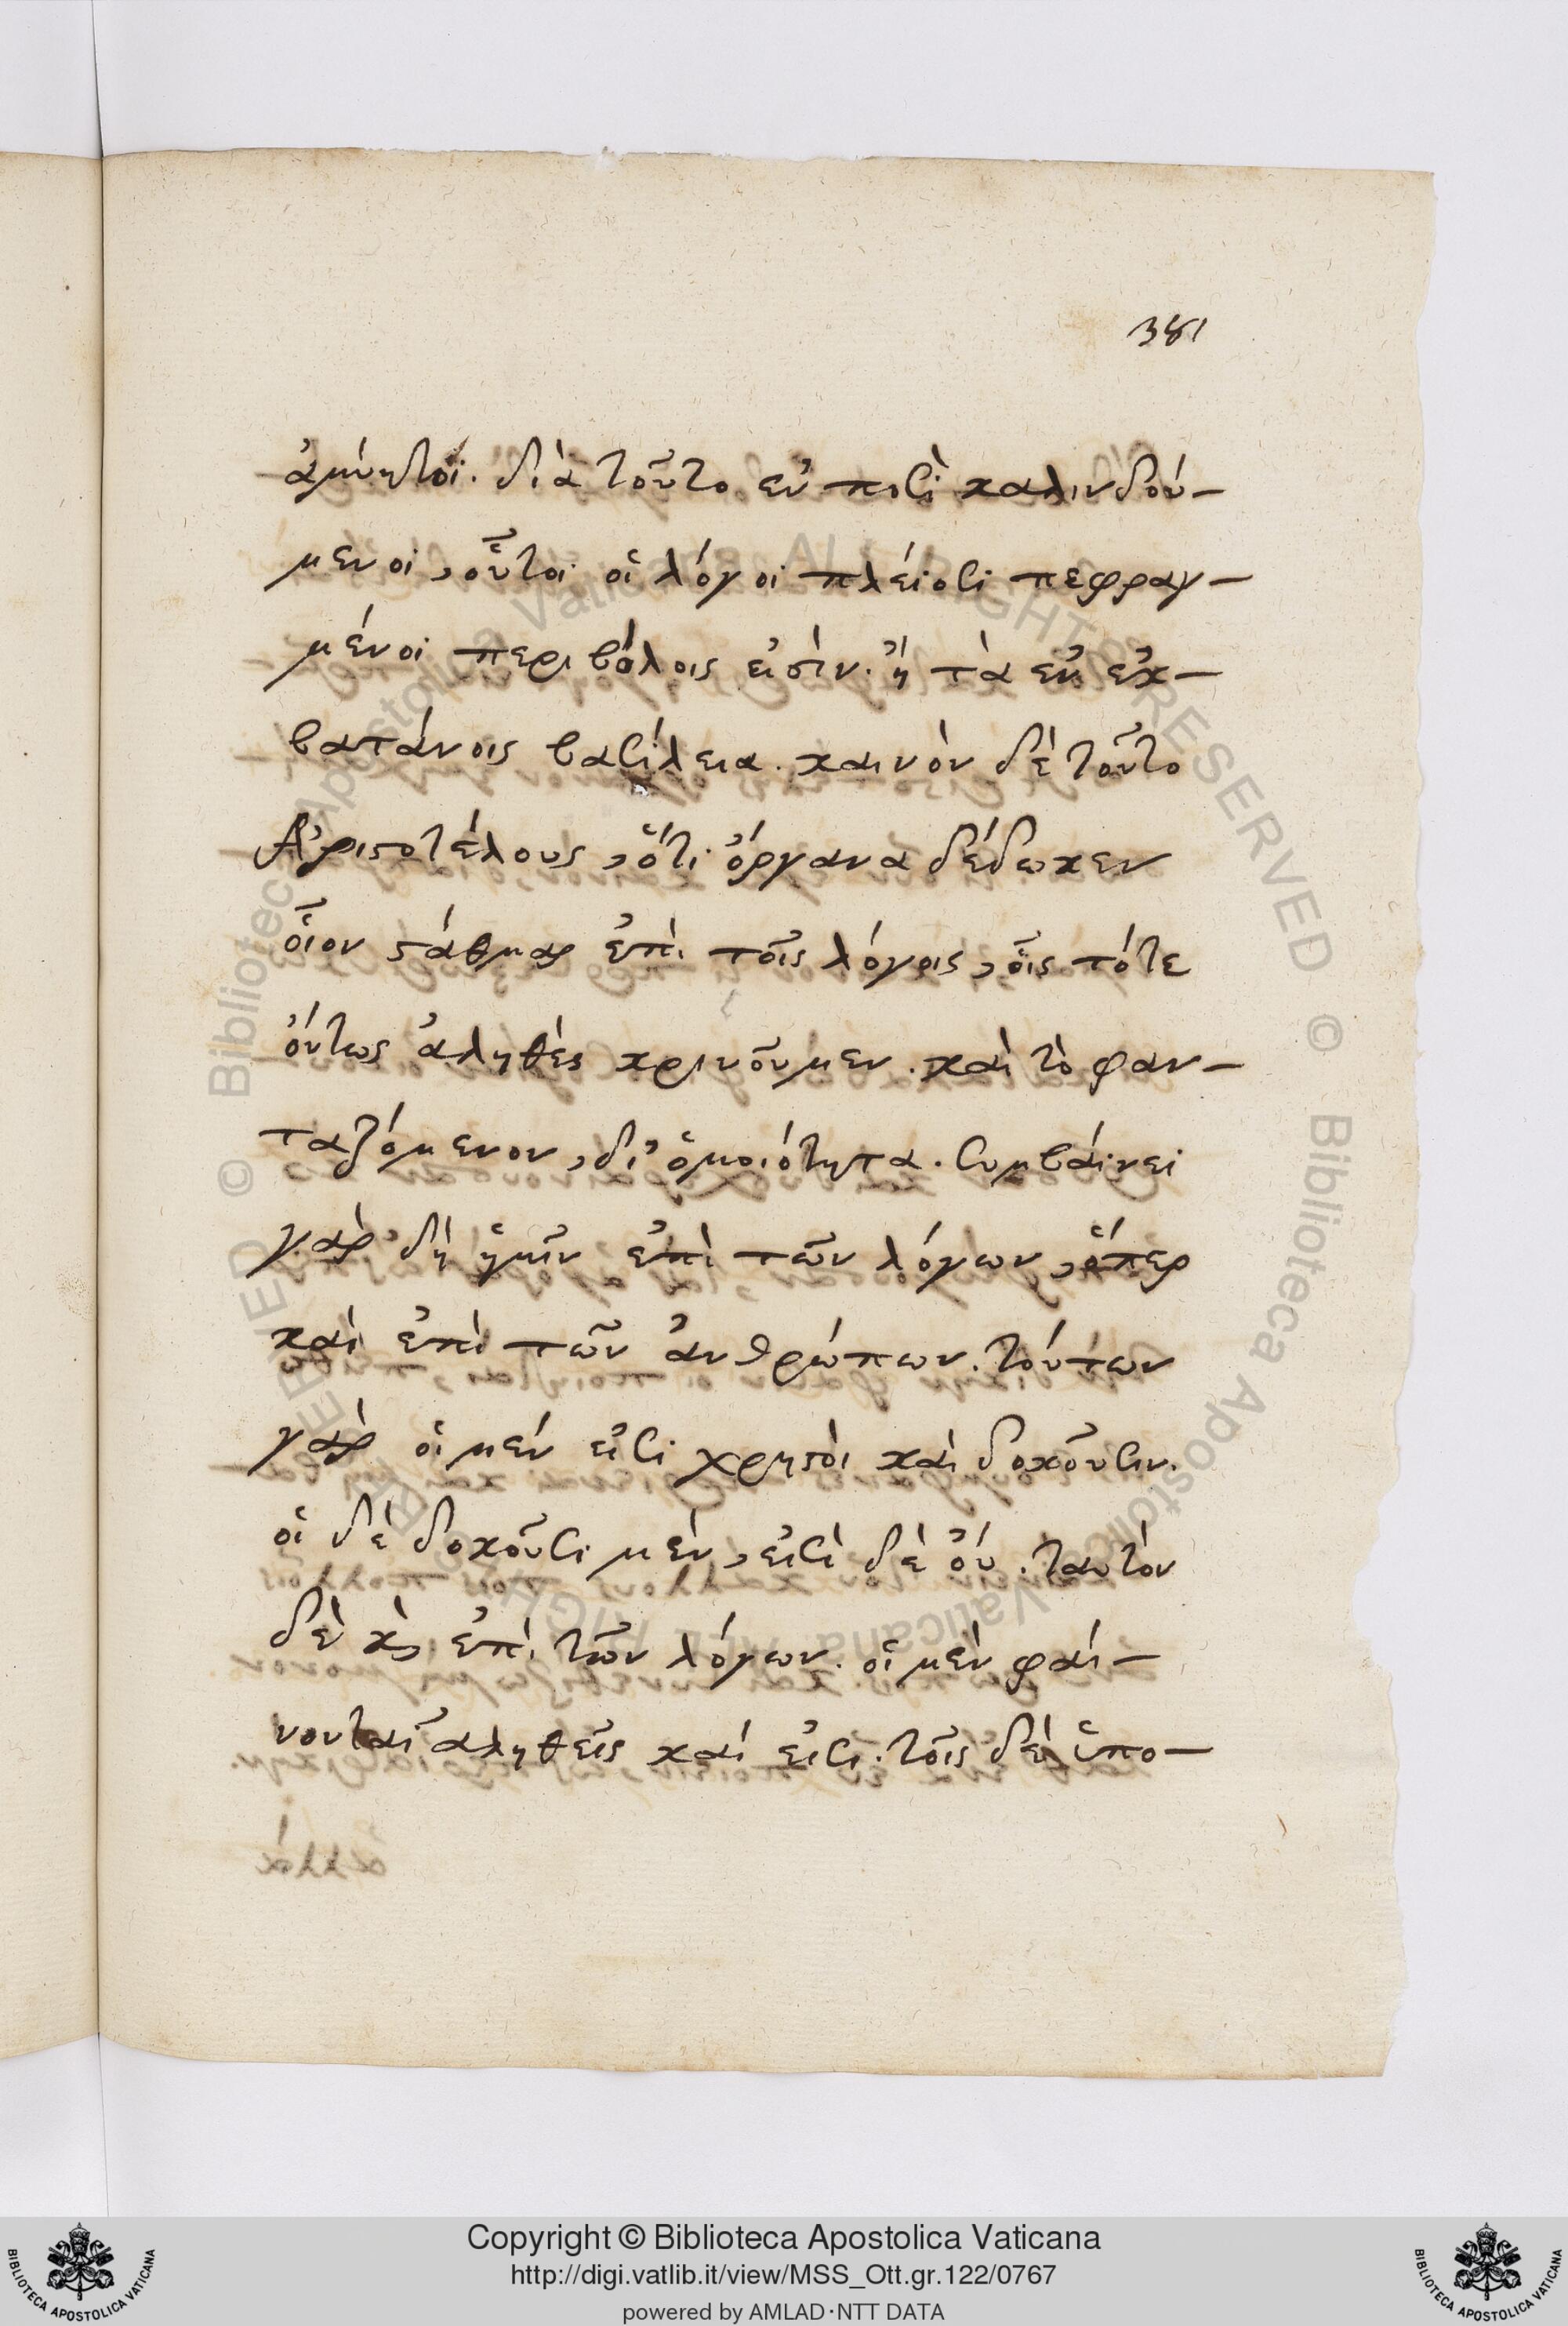 381
ἀμύητοι. διὰ τοῦτο ἐν ποσὶ καλινδού-
μενοι, οὗτοι οἱ λόγοι πλείοσι πεφραγ-
μένοι περιβόλοις εἰσὶν. ἢ τὰ ἐν ἐκ-
βατάνοις βασίλεια. καινὸν δὲ τοῦτο
Ἀριστοτέλους, ὅτι ὄργανα δέδωκεν
οἷον στάθμας ἐπὶ τοῖς λόγοις, οἷς τότε
ὄντως ἀληθὲς κρινοῦμεν. καὶ τὸ φαν-
ταζόμενον, δι' ὁμοιότητα. συμβαίνει
γὰρ δὴ ἡμῖν ἐπὶ τῶν λόγων, ὅπερ
καὶ ἐπὶ τῶν ἀνθρώπων. τούτων
γὰρ οἱ μέν εἰσι χρηστοὶ καὶ δοκοῦσιν.
οἱ δὲ δοκοῦσι μὲν, εἰσὶ δὲ οὔ. ταυτὸν
δὲ κỳ ἐπὶ τῶν λόγων. οἱ μὲν φαί-
νονται ἀληθεῖς καί εἰσι. τοῖς δὲ ὑπο-
Copyright © Biblioteca Apostolica Vaticana
http://digi.vatlib.it/view/MSS_Ott.gr.122/0767
powered by AMLAD·NTT DATA